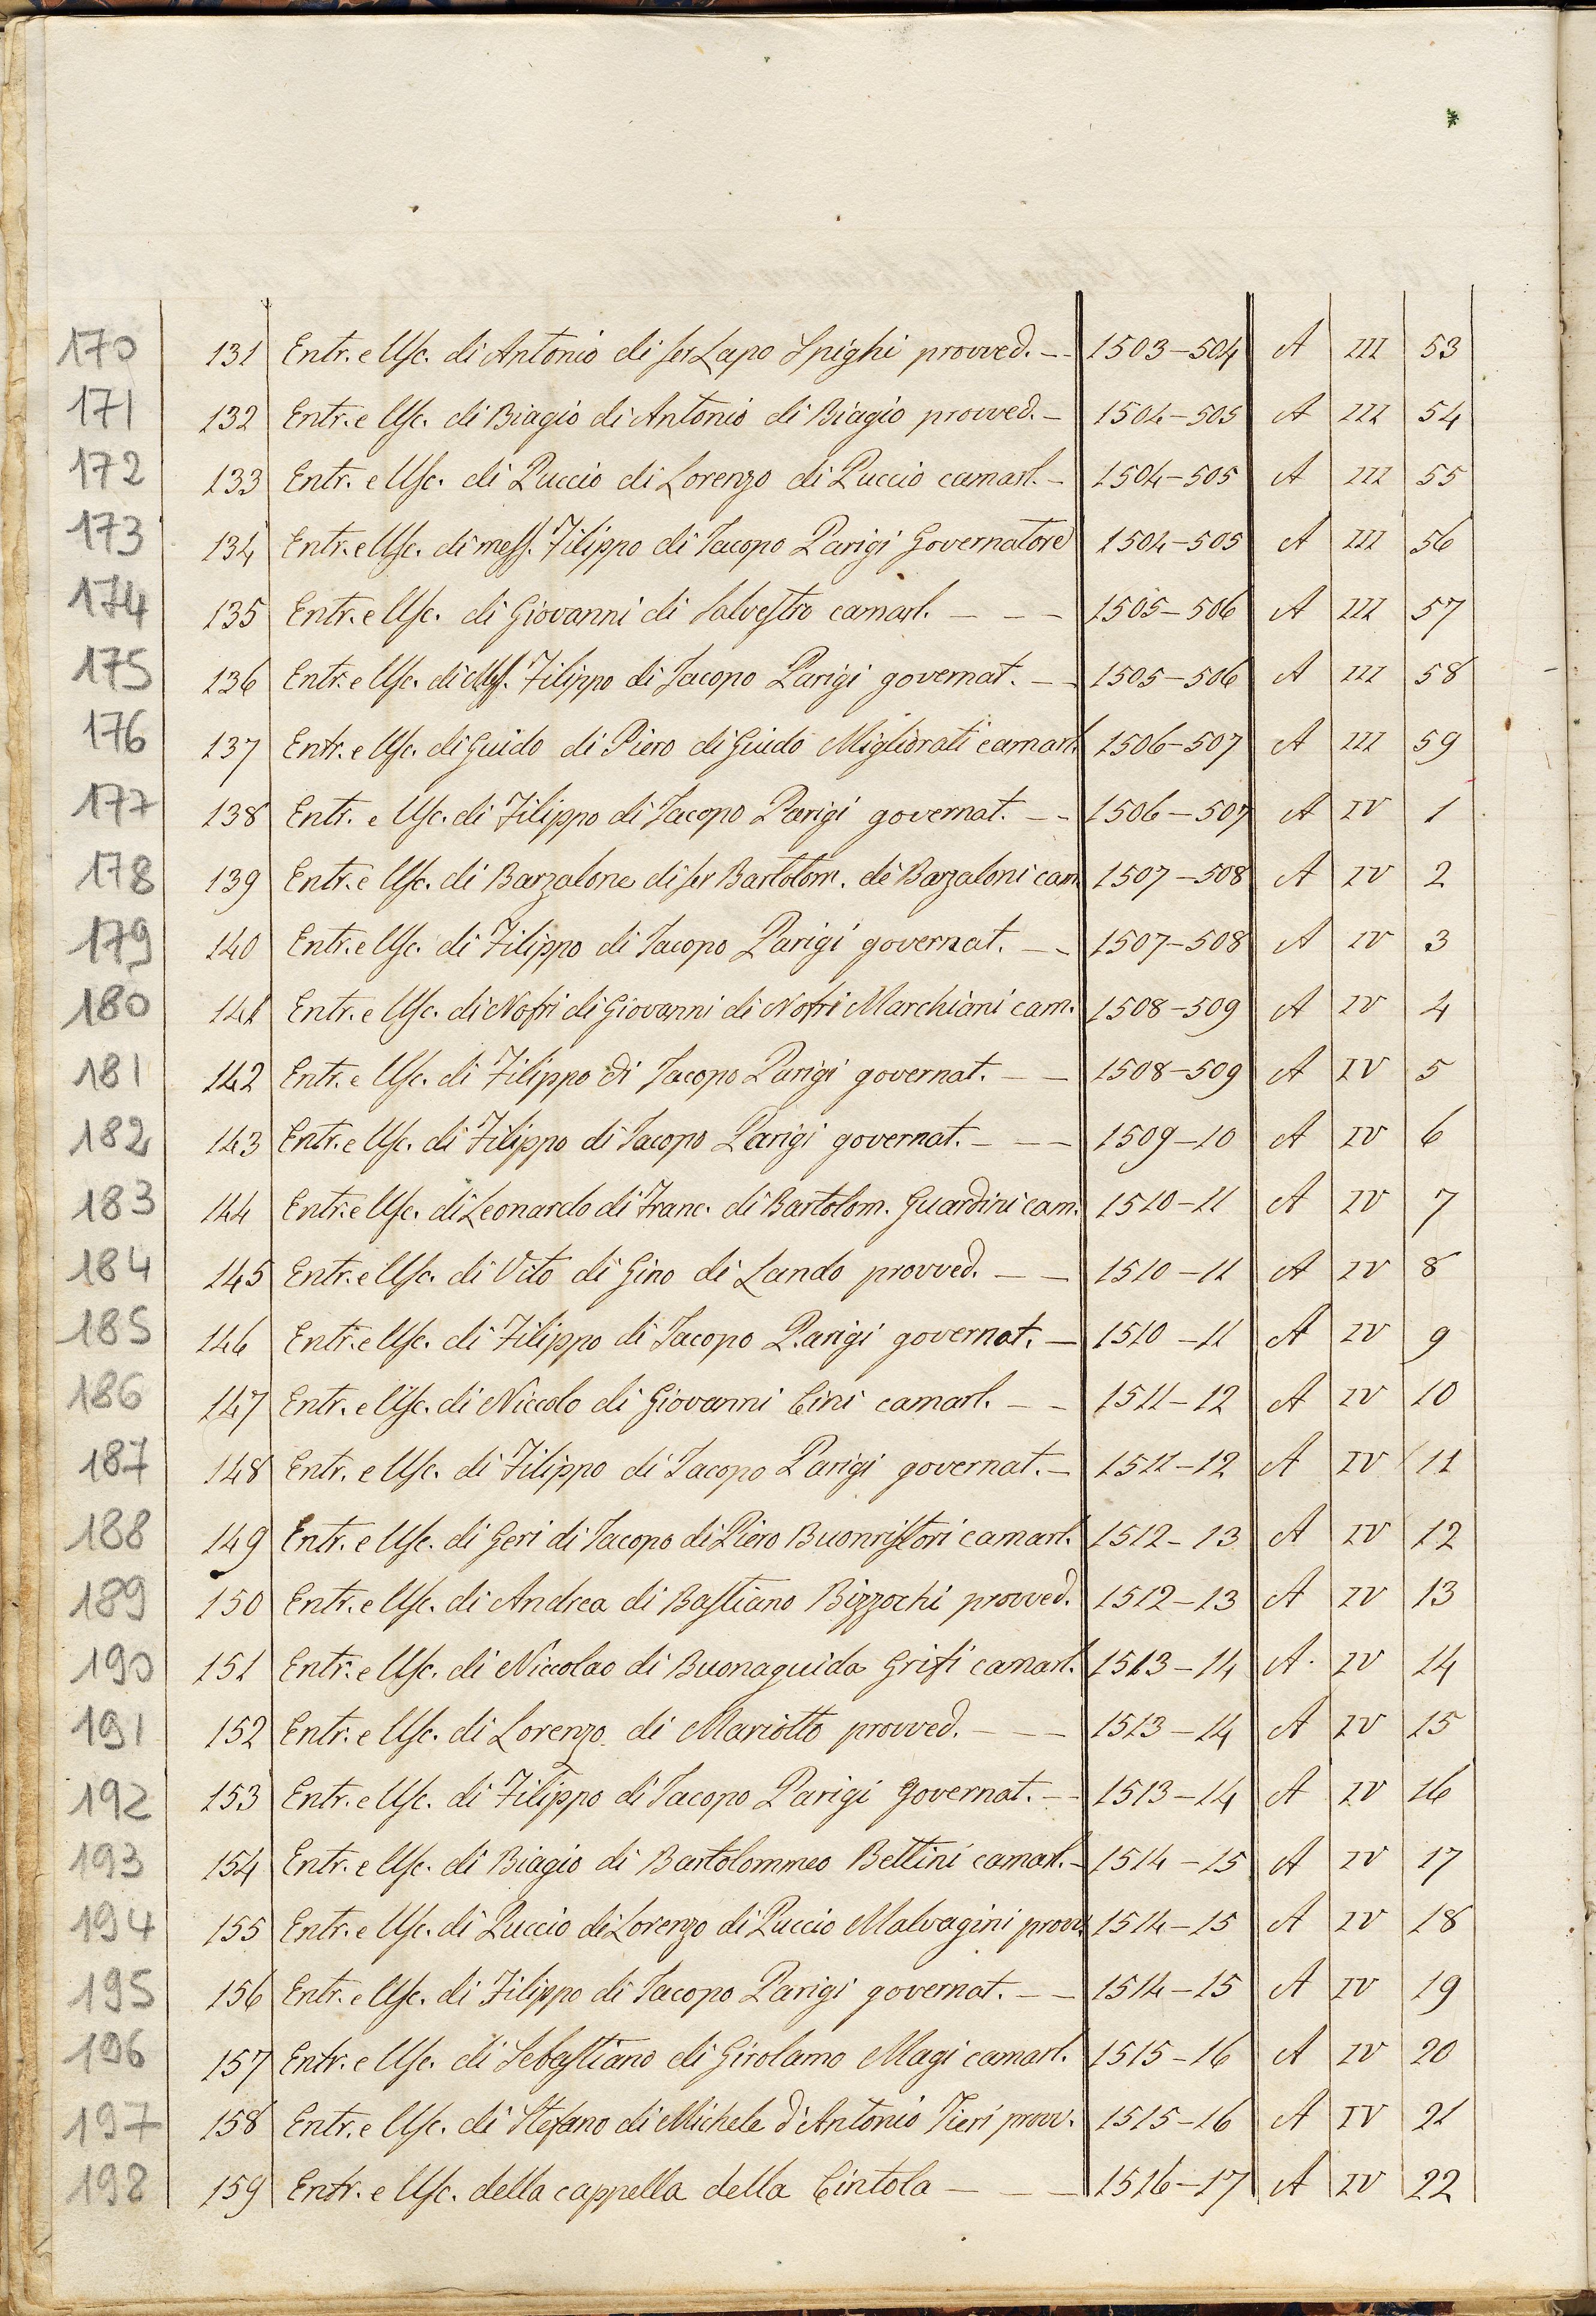 170 131 Entr. e Usc. di Antonio di ser Lapo Spighi provved. -- 1503-504 A III 53
171 132 Entr. e Usc. di Biagio di Antonio di Biagio provved. - 1504-505 A III 54
172 133 Entr. e Usc. di Puccio di Lorenzo di Puccio camarl. - 1504-505 A III 55
173 134 Entr. e Usc. di mess. Filippo di Iacopo Parigi Governatore 1504-505 A III 56
174 135 Entr. e Usc. di Giovanni di Salvestro camarl. - - - 1505-506 A III 57
175 136 Entr. e Usc. di Mess. Filippo di Iacopo Parigi governat. - - 1505-506 A III 58
176 137 Entr. e Usc. di Guido di Piero di Guido Migliorati camarl. 1506-507 A III 59
177 138 Entr. e Usc. di Filippo di Iacopo Parigi governat. - - 1506-507 A IV 1
178 139 Entr. e Usc. di Barzalone di ser Bartolom. de Barzaloni cam. 1507-508 A IV 2
179 140 Entr. e Usc. di Filippo di Iacopo Parigi governat. - - 1507-508 A IV 3
180 141 Entr. e Usc. di Nofri di Giovanni di Nofri Marchiani cam. 1508-509 A IV 4
181 142 Entr. e Usc. di Filippo di Iacopo Parigi governat. - - 1508-509 A IV 5
182 143 Entr. e Usc. di Filippo di Iacopo Parigi governat. - - - 1509-10 A IV 6
183 144 Entr. e Usc. di Leonardo di Franc. di Bartolom. Guardini cam. 1510-11 A IV 7
184 145 Entr. e Usc. di Vito di Gino di Lando provved. - - 1510-11 A IV 8
185 146 Entr. e Usc. di Filippo di Iacopo Parigi governat. - 1510-11 A IV 9
186 147 Entr. e Usc. di Niccolo di Giovanni Cini camarl. - - 1511-12 A IV 10
187 148 Entr. e Usc. di Filippo di Iacopo Parigi governat. - 1511-12 A IV 11
188 149 Entr. e Usc. di Geri di Iacopo di Piero Buonristori camarl. 1512-13 A IV 12
189 150 Entr. e Usc. di Andrea di Bastiano Bizzochi provved. 1512-13 A IV 13
190 151 Entr. e Usc. di Niccolao di Buonaguida Grifi camarl. 1513-14 A. IV 14
191 152 Entr. e Usc. di Lorenzo di Mariotto provved. - - - 1513-14 A IV 15
192 153 Entr. e Usc. di Filippo di Iacopo Parigi governat. - - 1513-14 A IV 16
193 154 Entr. e Usc. di Biagio di Bartolommeo Bettini camarl. - 1514-15 A IV 17
194 155 Entr. e Usc. di Puccio di Lorenzo di Puccio Malvagini provv. 1514-15 A IV 18
195 156 Entr. e Usc. di Filippo di Iacopo Parigi governat. - - 1514-15 A IV 19
196 157 Entr. e Usc. di Sebastiano di Girolamo Magi camarl. 1515-16 A IV 20
197 158 Entr. e Usc. di Stefano di Michele d'Antonio Fieri provv. 1515-16 A IV 21
198 159 Entr. e Usc. della cappella della Cintola - - - 1516-17 A IV 22